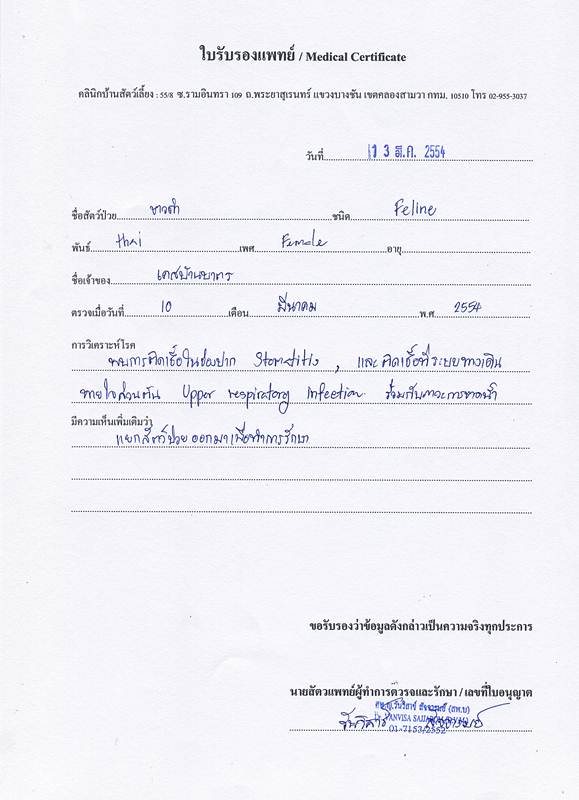 ใบรับรองแพทย์ / Medical Certificate
คลินิกบ้านสัตว์เลี้ยง : 55/8 ซ.รามอินทรา 109 ถ.พระยาสุเรนทร์ แขวงบางชัน เขตคลองสามวา กทม. 10510 โทร 02-955-3037
วันที่ 13 มี.ค. 2554
ชื่อสัตว์ป่วย ขาวดำ ชนิด Feline
พันธ์ thai เพศ Female อายุ
ชื่อเจ้าของ เคสบ้านบาทร
ตรวจเมื่อวันที่ 10 เดือน มีนาคม พ.ศ 2554
การวิเคราะห์โรค
พบการติดเชื้อในช่องปาก Stomatitis , และติดเชื้อที่ระบบทางเดิน
หายใจส่วนต้น Upper respiratory Infection ร่วมกับภาวะการขาดน้ำ
มีความเห็นเพิ่มเติมว่า
แยกสัตว์ป่วย ออกมาเพื่อทำการรักษา
ขอรับรองว่าข้อมูลดังกล่าวเป็นความจริงทุกประการ
นายสัตวแพทย์ผู้ทำการตัวรจและรักษา / เลขที่ใบอนุญาต
01-7153/2552